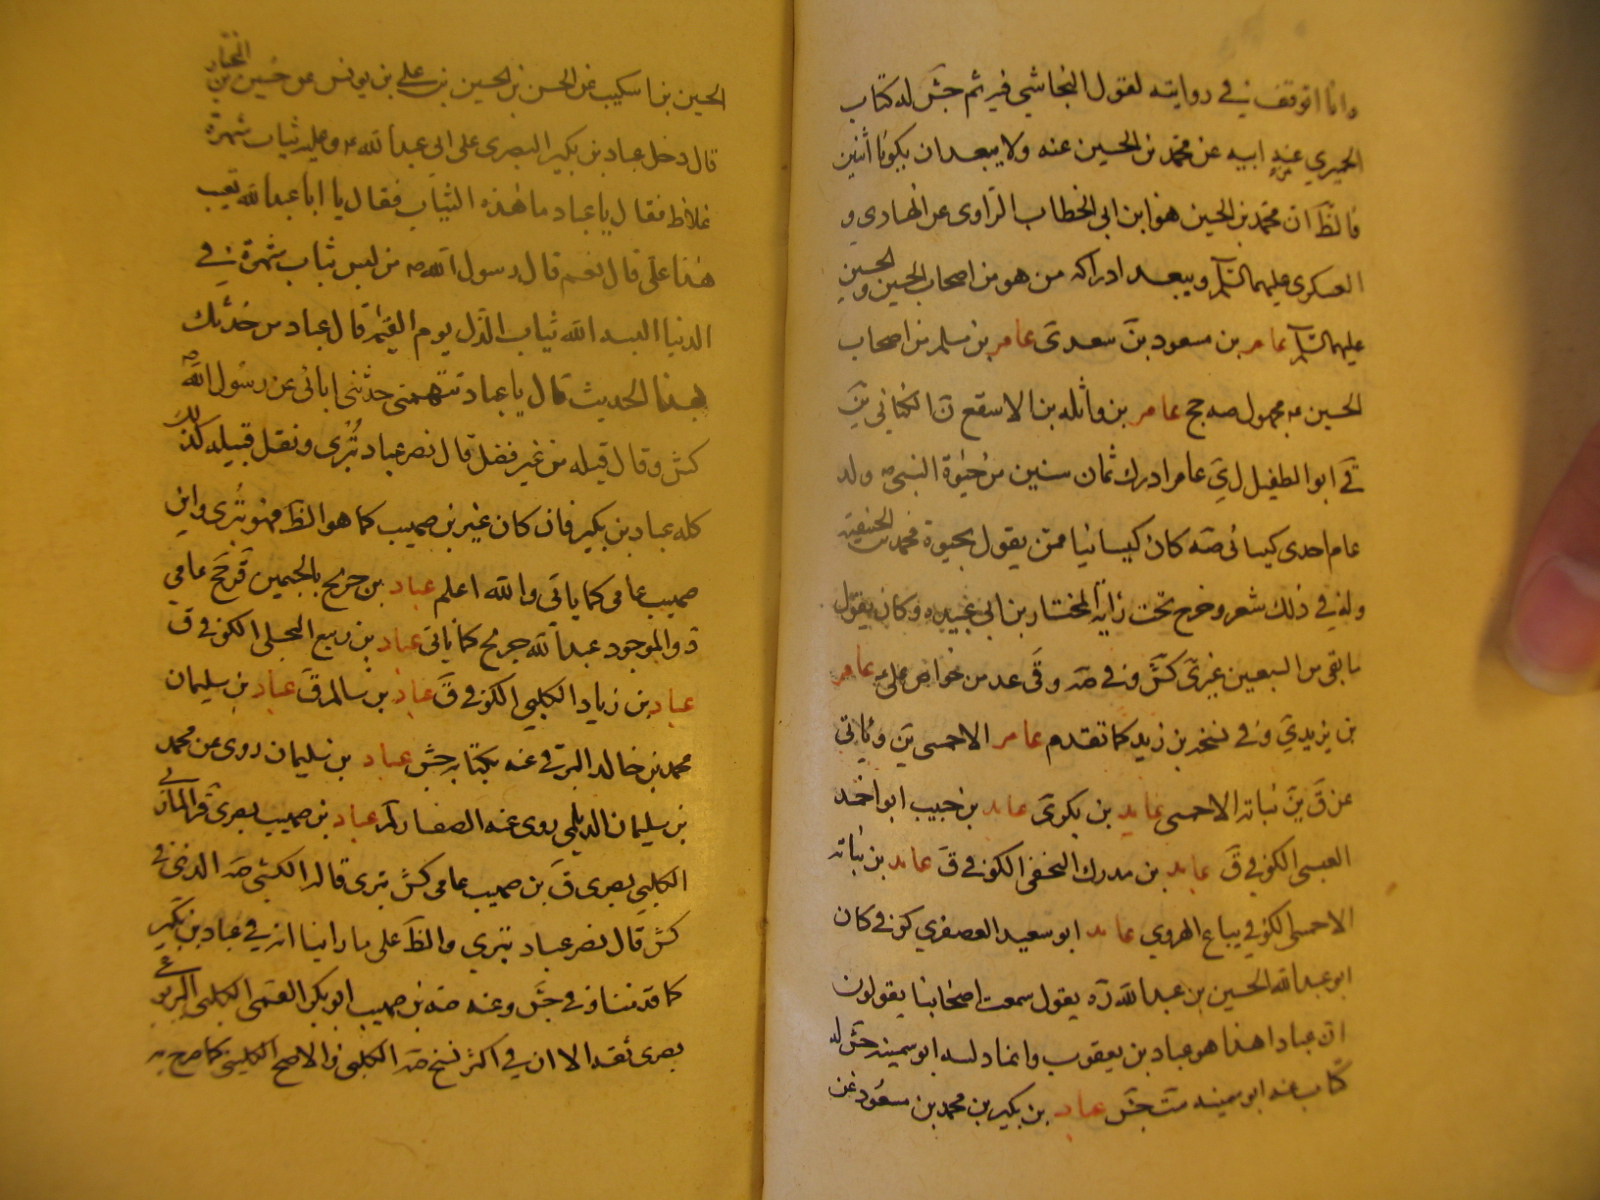 وانما اتوقف في روايته لقول النجاشي فيه ثم جش له كتاب
الحميري عنه ابيه عن محمد بن الحسين عنه ولا يبعد ان يكونا اثنين
فالظ ان محمد بن الحسين هو ابن ابي الخطاب الراوي عن الهادي و
العسكري عليهما السلام ويبعد ادراكه من هو من اصحاب الحسن والحسين
عليهما السلام عامر بن مسعود بن سعد ى عامر بن مسلم من اصحاب
الحسين مجهول صه جح عامر بن واثله بن الاسقع الكناني ين
قى ابو الطفيل ل ى عامر ادرك ثمان سنين من حيوة النبي ص ولد
عام احدى كيسانى صه كان كيسانيا ممن يقول بحيوة محمد بن الحنفية
وله في ذلك شعر وخرج تحت راية المختار بن ابي عبيده وكان يقول
ما بقى من السبعين غيرى كش وفي صه وقى عد من خواص علي عامر
بن يزيد ي وفي نسخه بن زيد كما تقدم عامر الاحمسى ين وياتي
عن ق بن نباته الاحمسى عايد بن بكر ى عايد بن حبيب ابو احمد
العبسى الكوفي ق عايد بن مدرك النخفى الكوفي ق عايد بن نباته
الاحمسى الكوفي بياع الهروي عباد ابو سعيد العصفري كوفي كان
ابو عبد الله الحسين بن عبد الله ره يقول سمعت اصحابنا يقولون
ان عبادا هذا هو عباد بن يعقوب وانما دلسه ابو سمينه جش له
كتاب عنه ابو سمينه ست جش عباد بن بكير بن محمد بن مسعود عن
الحسين بن اسكيب عن الحسن بن الحسين بن علي بن يونس عن حسين بن المختار
قال دخل عباد بن بكير البصري على ابي عبد الله ع وعليه ثياب شهرة
غلاظ فقال يا عباد ما هذه الثياب فقال يا ابا عبد الله تعيب
هذا علي قال نعم قال رسول الله ص من لبس ثياب شهرة في
الدنيا البسه الله ثياب الذل يوم القيمه قال عباد من حدثك
بهذا الحديث قال يا عباد تتهمني حدثني ابائى عن رسول الله ص
كش وقال قبله من غير فصل قال نصر عباد بترى ونقل قبيله كذلك
كله عباد بن بكير فان كان غير بن صهيب كما هو الظ فهو بترى وابن
صهيب عامى كما ياتي والله اعلم عباد بن جريح بالجيمين ق جح عامي
د والموجود عبد الله جريح كما ياتى عباد بن ربيع البجلى الكوفي ق
عباد بن زياد الكلبي الكوفي ق عباد بن سالم ق عباد بن سليمان
محمد بن خالد البرقي عنه بكتابه جش عباد بن سليمان روى عن محمد
بن سليمان الديلمي روى عنه الصفار لم عباد بن صهيب بصرى ق
الكلبي بصرى ق بن صهيب عامى كش بترى قاله الكشي صه
كش قال نصر عباد بتري والظ على ما راينا انه في عباد بن بكير
كما قدمنا وفي جش وعنه صه بن صهيب ابو بكر التميمى الكلبي اليربوعي
بصرى ثقه الا ان في اكثر نسخ صه الكلبي والاصح الكليبي كما صرح به